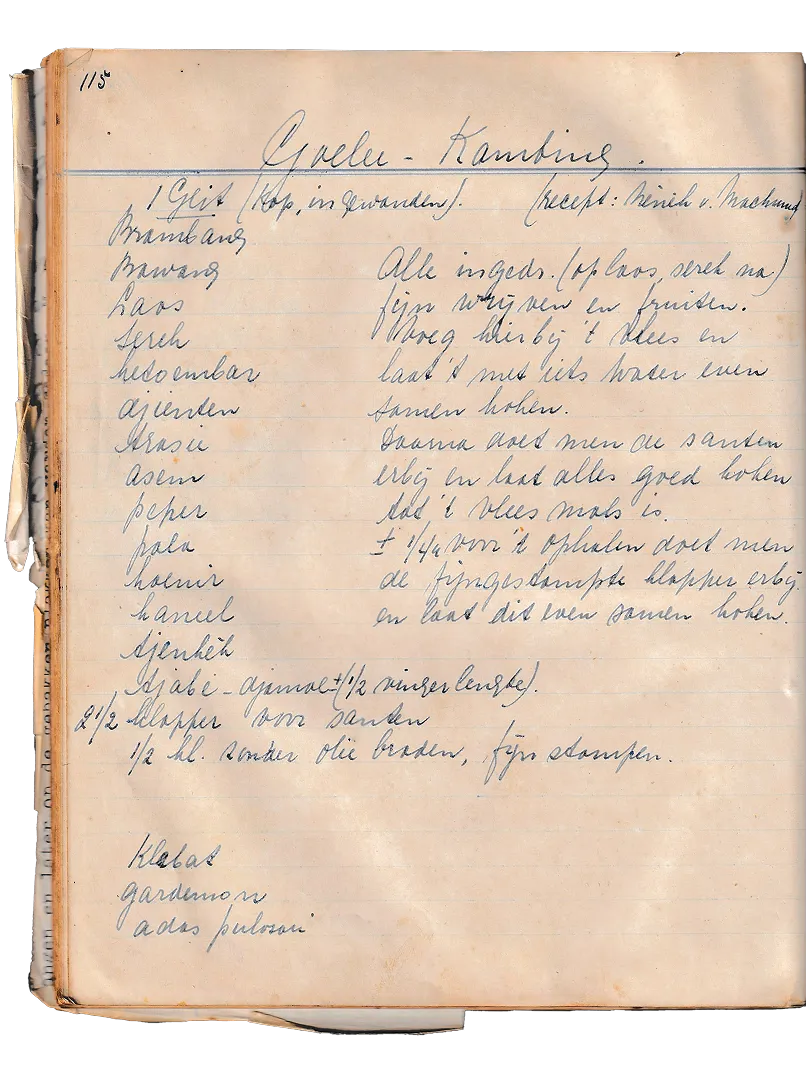 115
Goelee - Kambing.
1 Geit (kop, ingewanden). (recept: v.
Brambang
Bawang
Laos
sereh
ketoembar
djienten
trasie
asem
peper
pala
koenir
kaneel
tjenkèh
tjabé-djamoe ± (1/2 vingerlengte).
2 1/2 klapper voor santen
1/2 kl. zonder olie braden, fijn stampen.
Klabat
gardemon
adas pulosari
Alle ingedr. (op laos, sereh na)
fijn wrijven en fruiten.
Voeg hierbij 't vlees en
laat 't met iets water even
samen koken.
Daarna doet men de santen
erbij en laat alles goed koken
tot 't vlees mals is.
± 1/4 u voor 't ophalen doet men
de fijngestampte klapper erbij
en laat dit even samen koken.